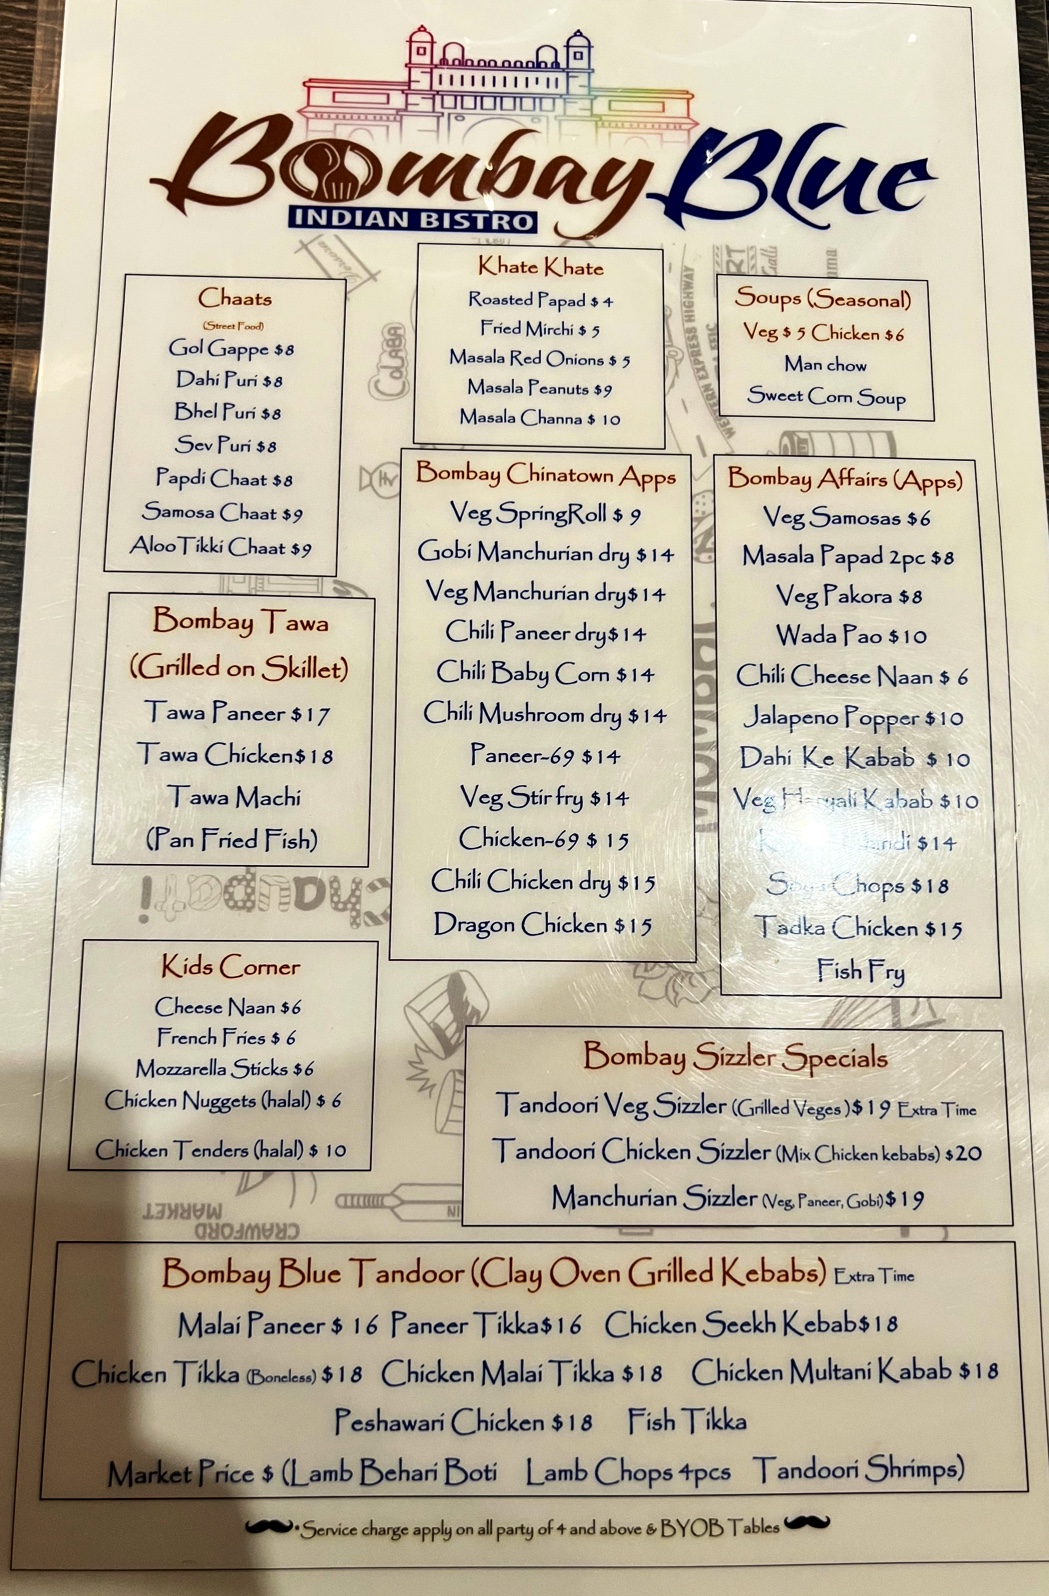 Bombay Blue
INDIAN BISTRO
Chaats
(Street Food)
Gol Gappe $8
Dahi Puri $8
Bhel Puri $8
Sev Puri $8
Papdi Chaat $8
Samosa Chaat $9
Aloo Tikki Chaat $9
Khate Khate
Roasted Papad $ 4
Fried Mirchi $ 5
Masala Red Onions $ 5
Masala Peanuts $9
Masala Channa $ 10
Soups (Seasonal)
Veg $ 5 Chicken $6
Man chow
Sweet Corn Soup
Bombay Tawa
(Grilled on Skillet)
Tawa Paneer $17
Tawa Chicken$18
Tawa Machi
(Pan Fried Fish)
Bombay Chinatown Apps
Veg SpringRoll $ 9
Gobi Manchurian dry $14
Veg Manchurian dry$14
Chili Paneer dry$14
Chili Baby Corn $14
Chili Mushroom dry $14
Paneer-69 $14
Veg Stir fry $14
Chicken-69 $ 15
Chili Chicken dry $15
Dragon Chicken $15
Bombay Affairs (Apps)
Veg Samosas $6
Masala Papad 2pc $8
Veg Pakora $8
Wada Pao $10
Chili Cheese Naan $ 6
Jalapeno Popper $10
Dahi Ke Kabab $ 10
Veg Kabab $10
$14
Chops $18
Tadka Chicken $15
Fish Fry
Kids Corner
Cheese Naan $6
French Fries $ 6
Mozzarella Sticks $6
Chicken Nuggets (halal) $ 6
Chicken Tenders (halal) $ 10
Bombay Sizzler Specials
Tandoori Veg Sizzler (Grilled Veges )$19 Extra Time
Tandoori Chicken Sizzler (Mix Chicken kebabs) $20
Manchurian Sizzler (Veg, Paneer, Gobi)$19
Bombay Blue Tandoor (Clay Oven Grilled Kebabs) Extra Time
Malai Paneer $ 16 Paneer Tikka$16 Chicken Seekh Kebab$18
Chicken Tikka (Boneless) $18 Chicken Malai Tikka $18 Chicken Multani Kabab $18
Peshawari Chicken $18 Fish Tikka
Market Price $ (Lamb Behari Boti Lamb Chops 4pcs Tandoori Shrimps)
•Service charge apply on all party of 4 and above & BYOB Tables
COLABA
WESTERN EXPRESS HIGHWAY
MUMBAI
Chaupati!
CRAWFORD
MARKET